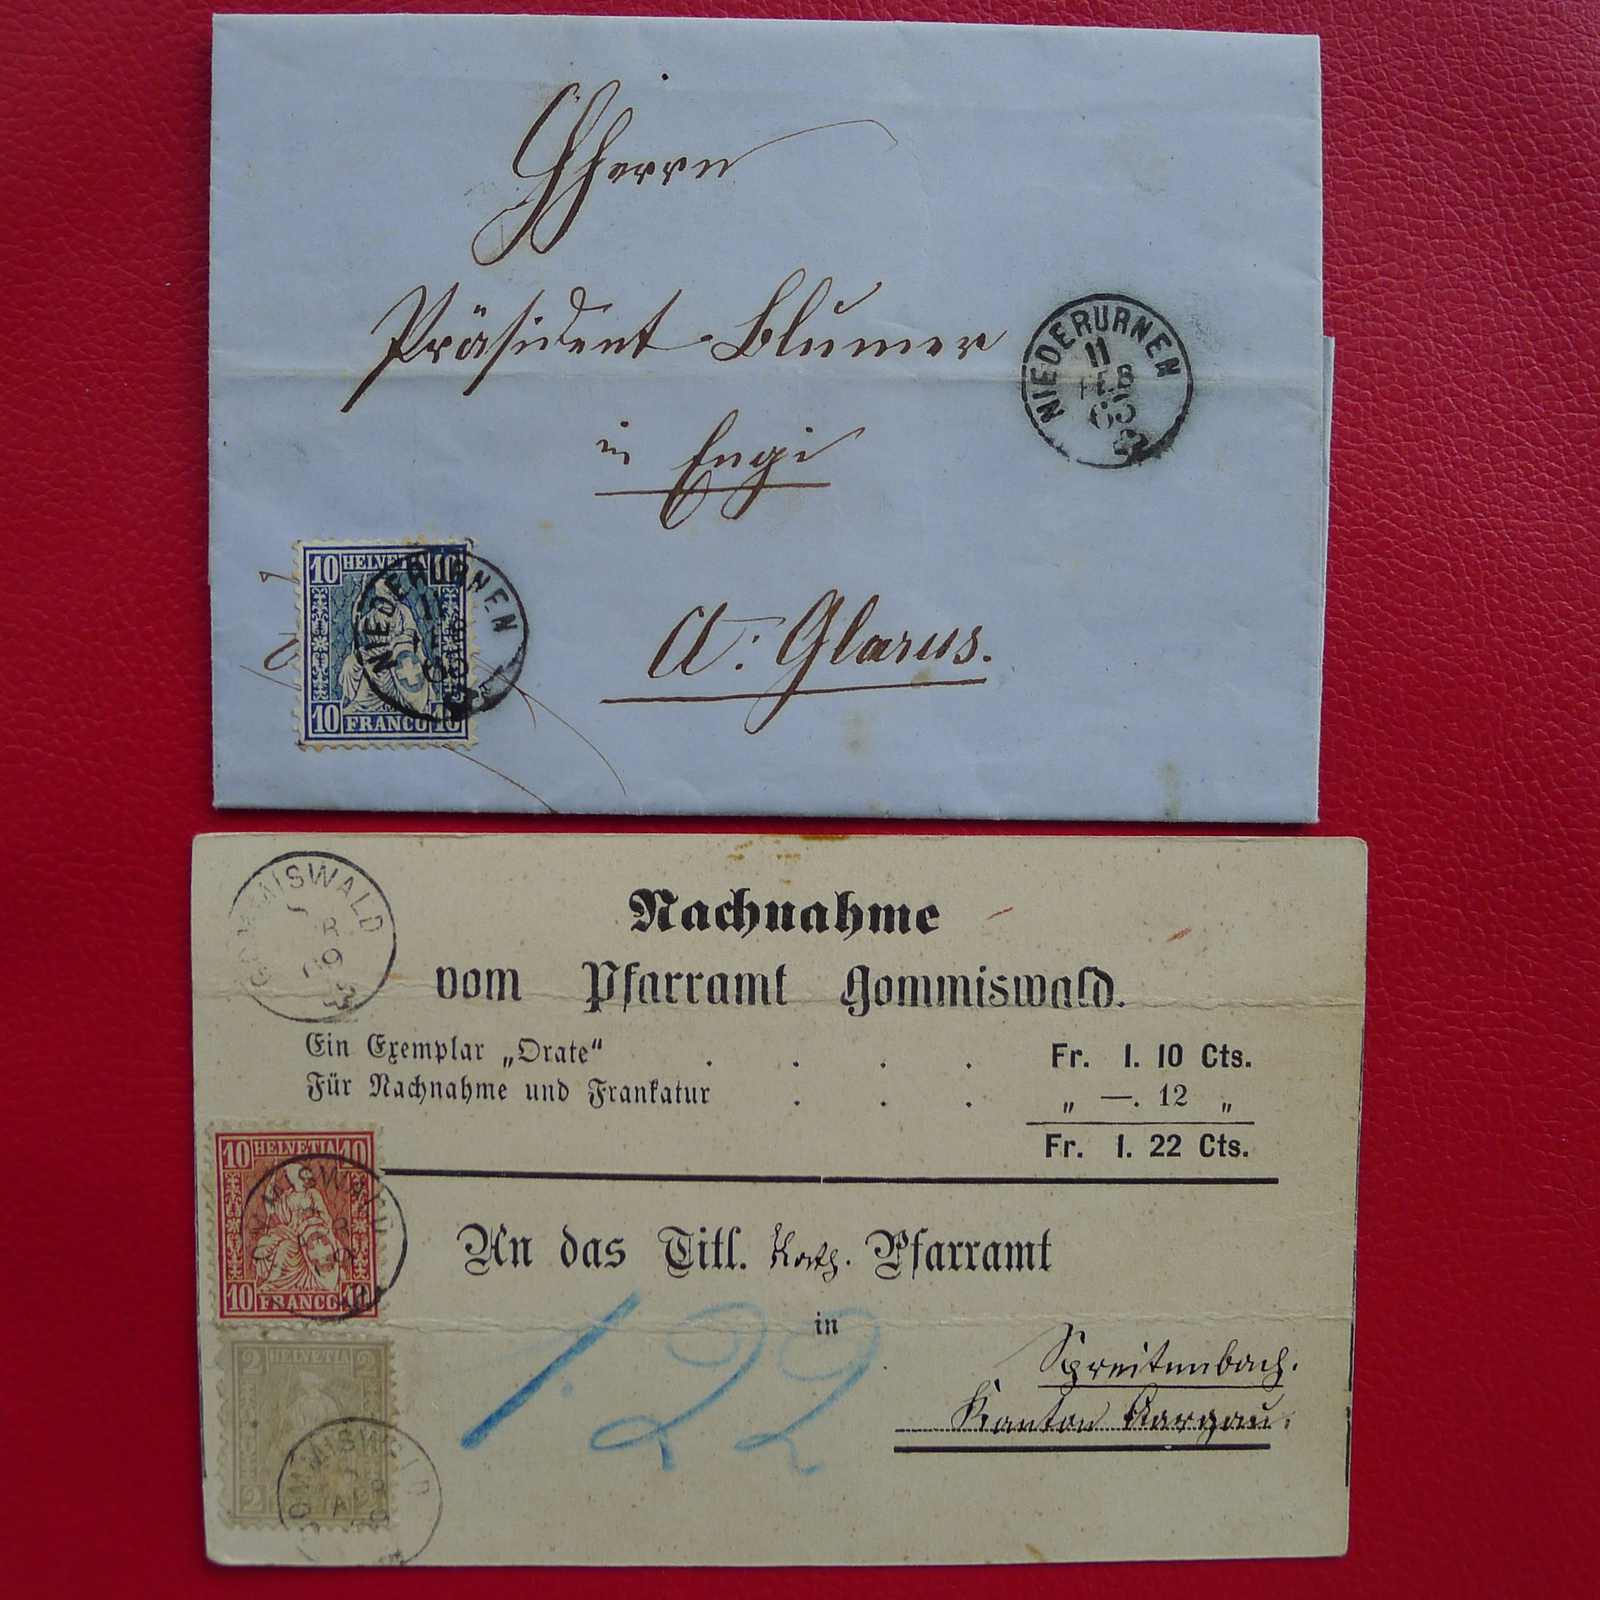 Hherrn
Präsident Blumer
in Engi
Ct: Glarus.
NIEDERURNEN
11
FEB
65
10 HELVETIA 10
10 FRANCO 10
NIEDERURNEN
11
GOMMISWALD
Nachnahme
vom Pfarramt Gommiswald.
Ein Exemplar „Orate“ . . . . Fr. 1. 10 Cts.
Für Nachnahme und Frankatur . . . „ —. 12 „
Fr. 1. 22 Cts.
10 HELVETIA 10
10 FRANCO 10
GOMMISWALD
An das Titl. Kath. Pfarramt
in
1.22
Spreitenbach.
Kanton Aargau.
2 HELVETIA 2
2 2
GOMMISWALD